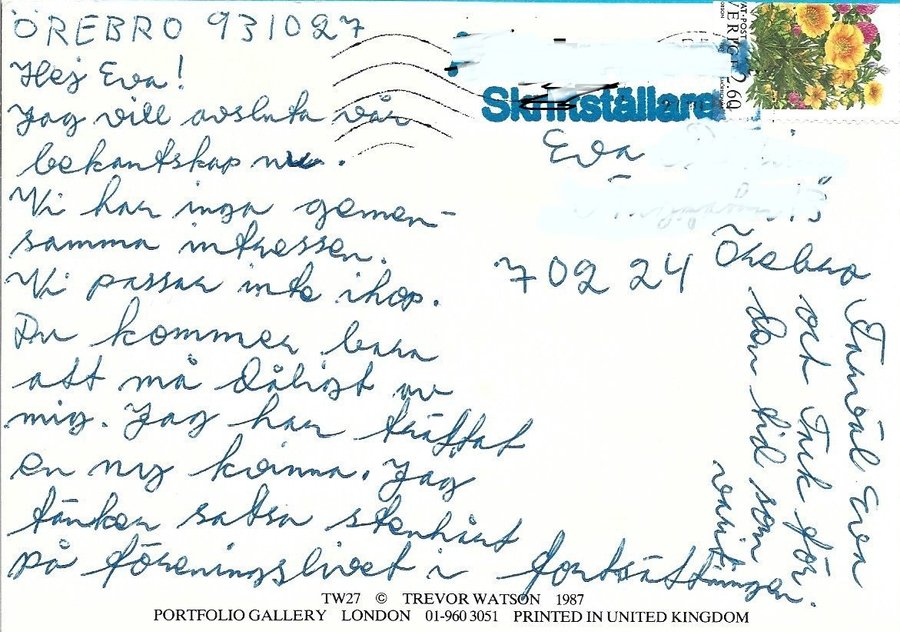 ÖREBRO 931027
Hej Eva!
Jag vill avsluta vår
bekantskap nu.
Vi har inga gemen-
samma intressen.
Vi passar inte ihop.
Du kommer bara
att må dåligt av
mig. Jag har träffat
en ny kvinna. Jag
tänker satsa stenhårt
på föreningslivet i fortsättningen.
Farväl Eva
och Tack för
den tid som
varit.
Skriftställare
Eva
702 24 Örebro
SVERIGE
TW27 © TREVOR WATSON 1987
PORTFOLIO GALLERY LONDON 01-960 3051 PRINTED IN UNITED KINGDOM